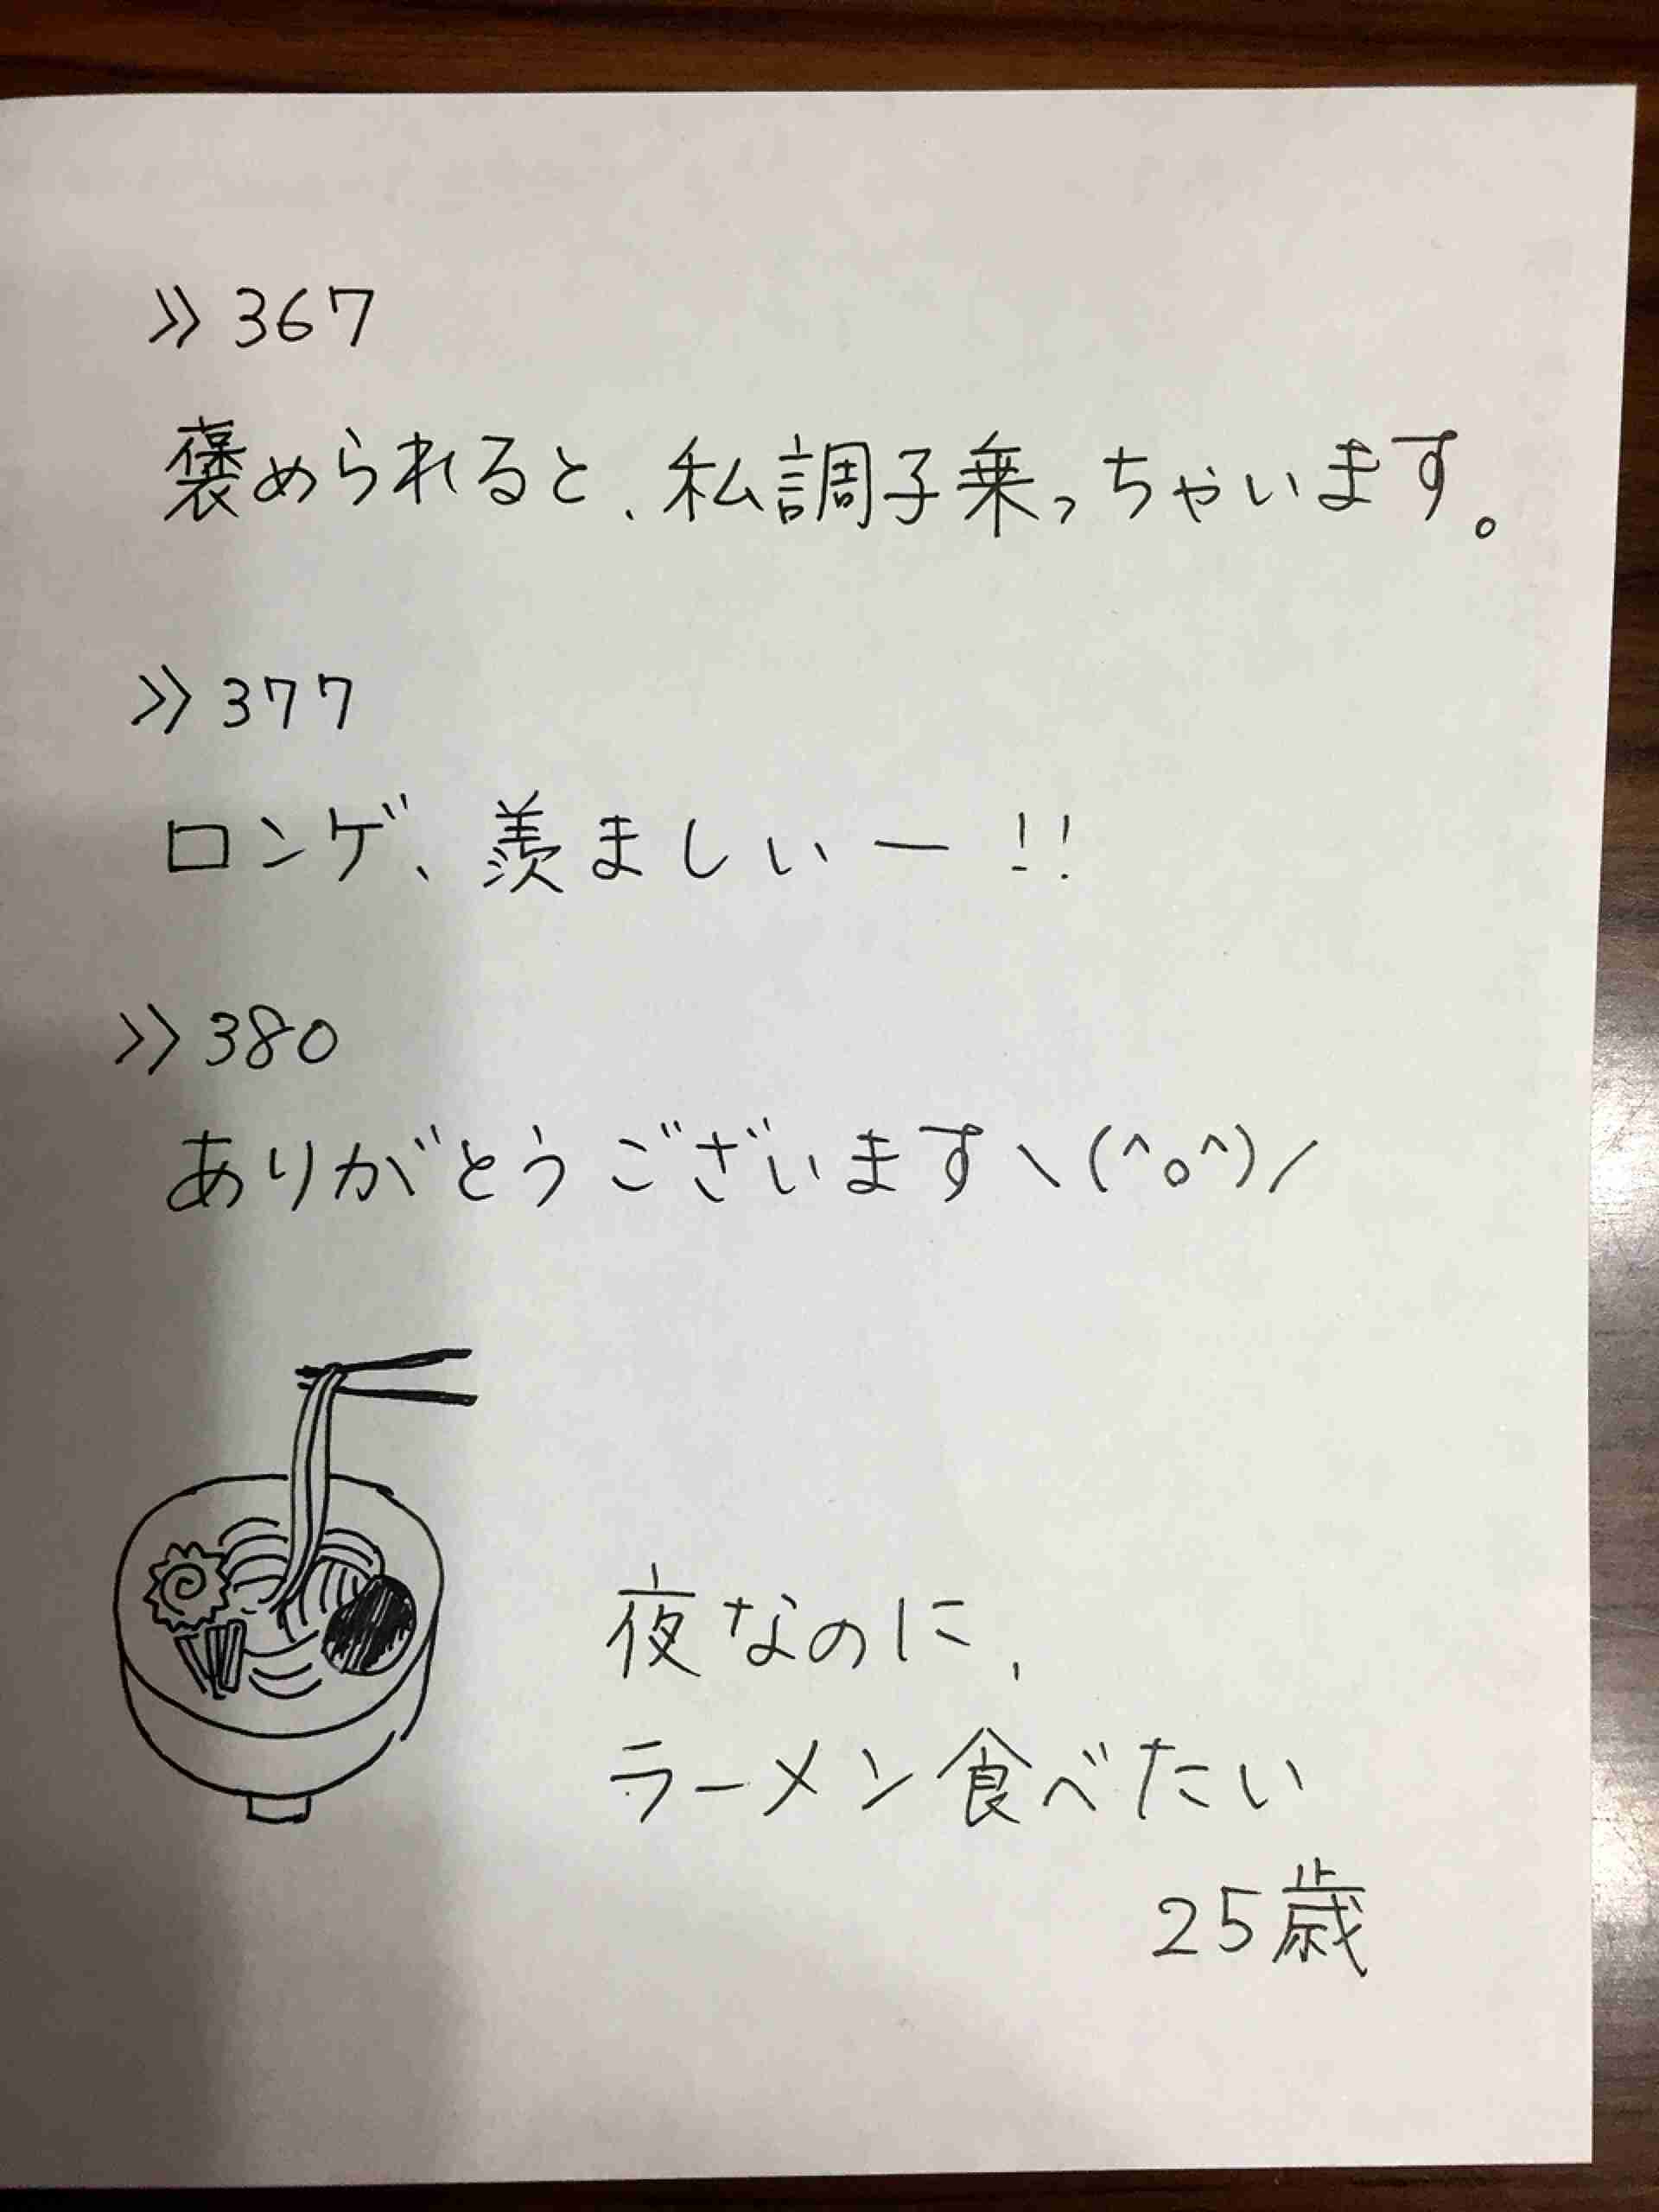 >>367
褒められると、私調子乗っちゃいます。
>>377
ロンゲ、羨ましいー!!
>>380
ありがとうございます\(^o^)/
夜なのに、
ラーメン食べたい
25歳